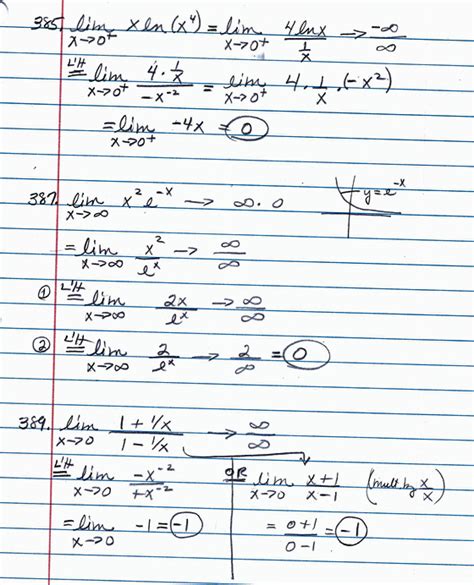 385. lim x→0⁺ x ln(x⁴) = lim x→0⁺ 4lnx / (1/x) → -∞/∞
L'H = lim x→0⁺ (4 · 1/x) / (-x⁻²) = lim x→0⁺ 4 · 1/x · (-x²)
= lim x→0⁺ -4x = 0
387. lim x→∞ x² e⁻ˣ → ∞ · 0 y = e⁻ˣ
= lim x→∞ x²/eˣ → ∞/∞
① L'H = lim x→∞ 2x/eˣ → ∞/∞
② L'H = lim x→∞ 2/eˣ → 2/∞ = 0
389. lim x→0 (1 + 1/x) / (1 - 1/x) → ∞/∞
L'H = lim x→0 -x⁻² / +x⁻² OR lim x→0 (x+1)/(x-1) (mult by x/x)
= lim x→0 -1 = -1 = (0+1)/(0-1) = -1